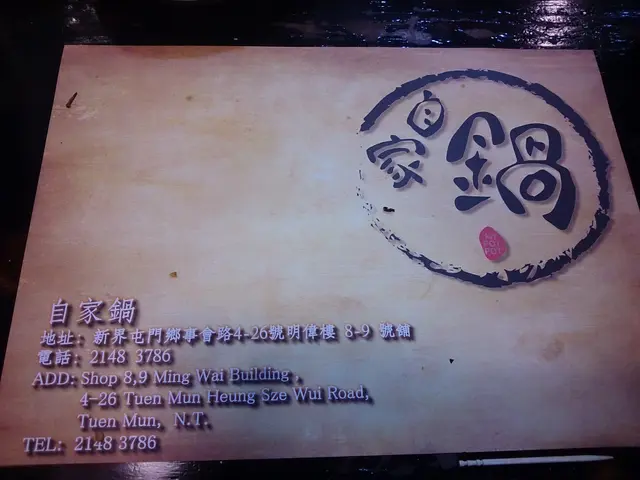 自家
鍋
自家鍋
地址: 新界屯門鄉事會路4-26號明偉樓 8-9 號舖
電話: 2148 3786
ADD: Shop 8,9 Ming Wai Building ,
4-26 Tuen Mun Heung Sze Wui Road,
Tuen Mun, N.T.
TEL: 2148 3786